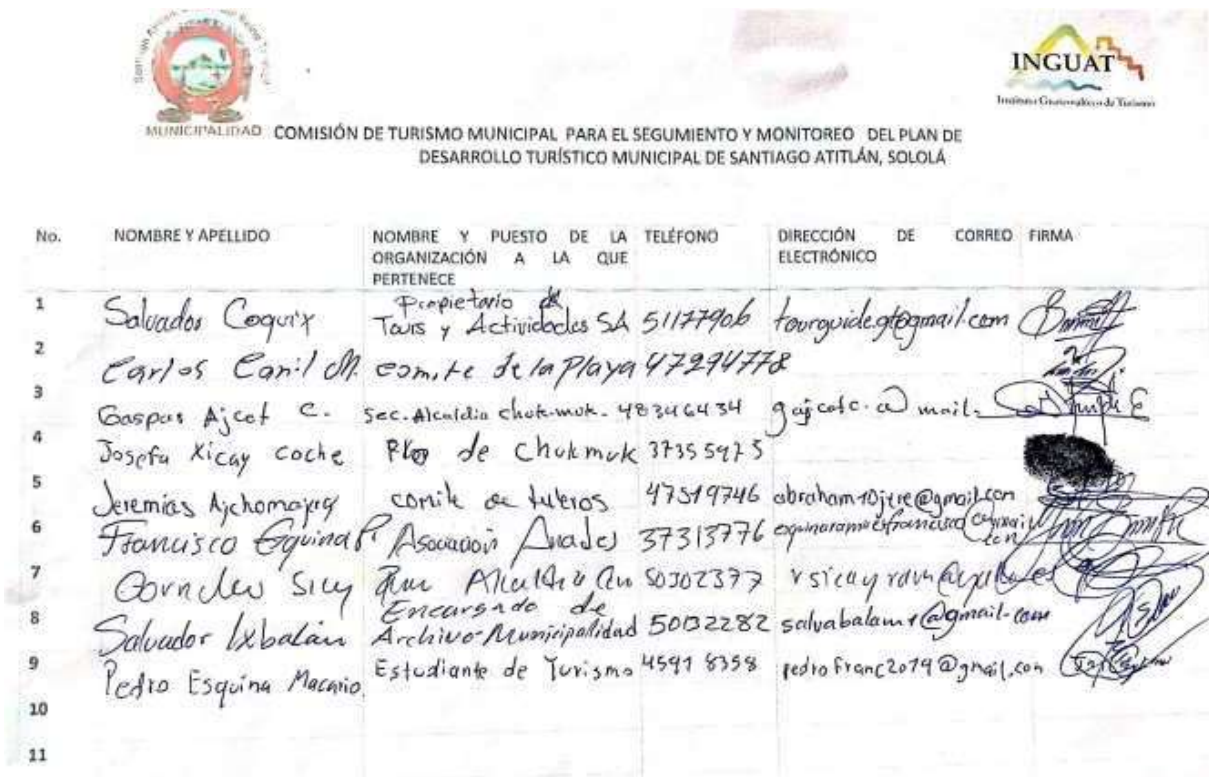 MUNICIPALIDAD
INGUAT
Instituto Guatemalteco de Turismo
COMISIÓN DE TURISMO MUNICIPAL PARA EL SEGUMIENTO Y MONITOREO DEL PLAN DE
DESARROLLO TURÍSTICO MUNICIPAL DE SANTIAGO ATITLÁN, SOLOLÁ
No. NOMBRE Y APELLIDO NOMBRE Y PUESTO DE LA TELÉFONO DIRECCIÓN DE CORREO FIRMA
ORGANIZACIÓN A LA QUE ELECTRÓNICO
PERTENECE
1 Salvador Coquix Propietario de
Tours y Actividades SA 51177906 tourguide.gt@gmail.com
2 Carlos Canil M. comite de la Playa 47294778
3 Gaspar Ajcot C. Sec. Alcaldia chuk-muk. 48346434 gajcotc.@mail.
4 Josefa Xicay coche de Chukmuk 37355975
5 Jeremias comite de tuleros 47519746 abraham10jere@gmail.com
6 Francisco Esquina R. Asociación Anades 37313776
7 Sicay 50302377
8 Salvador Ixbalán Encargado de
Archivo-Municipalidad 50132282 salvabalam1@gmail.com
9 Pedro Esquina Macario. Estudiante de Turismo 4591 8358 pedrofranc2019@gmail.com
10
11